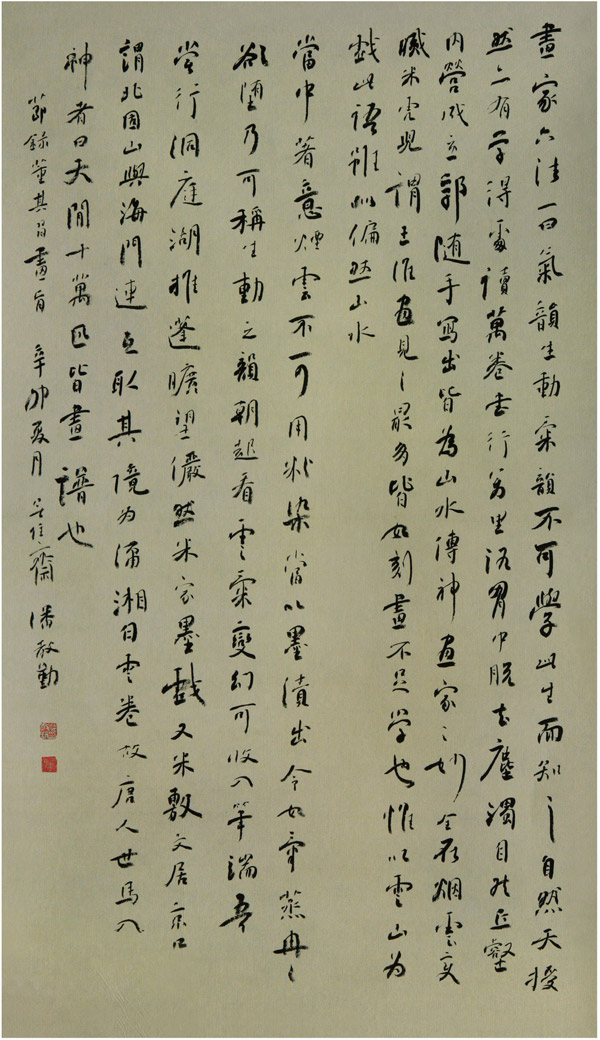 畫家六法一曰氣韻生動氣韻不可學此生而知之自然天授
然亦有學得處讀萬卷書行萬里路胸中脫去塵濁自然丘壑
内營成立郭随手寫出皆為山水傳神画家之妙全在烟雲变
滅米虎兒謂王維画見之最多皆如刻畫不足學也惟以雲山為
戲此語雖似偏然山水
當中著意煙雲不可用粉染當以墨漬出令如氣蒸冉冉
欲墮乃可稱生動之韻朝起看雲氣變幻可收入筆端吾
嘗行洞庭湖推蓬曠望儼然米家墨戲又米敷文居京口
謂北固山與海門連亙取其境為瀟湘白雲卷故唐人世馬入
神者曰天閒十萬匹皆畫譜也
節錄董其昌畫旨 辛卯夏月 齋 潘勤